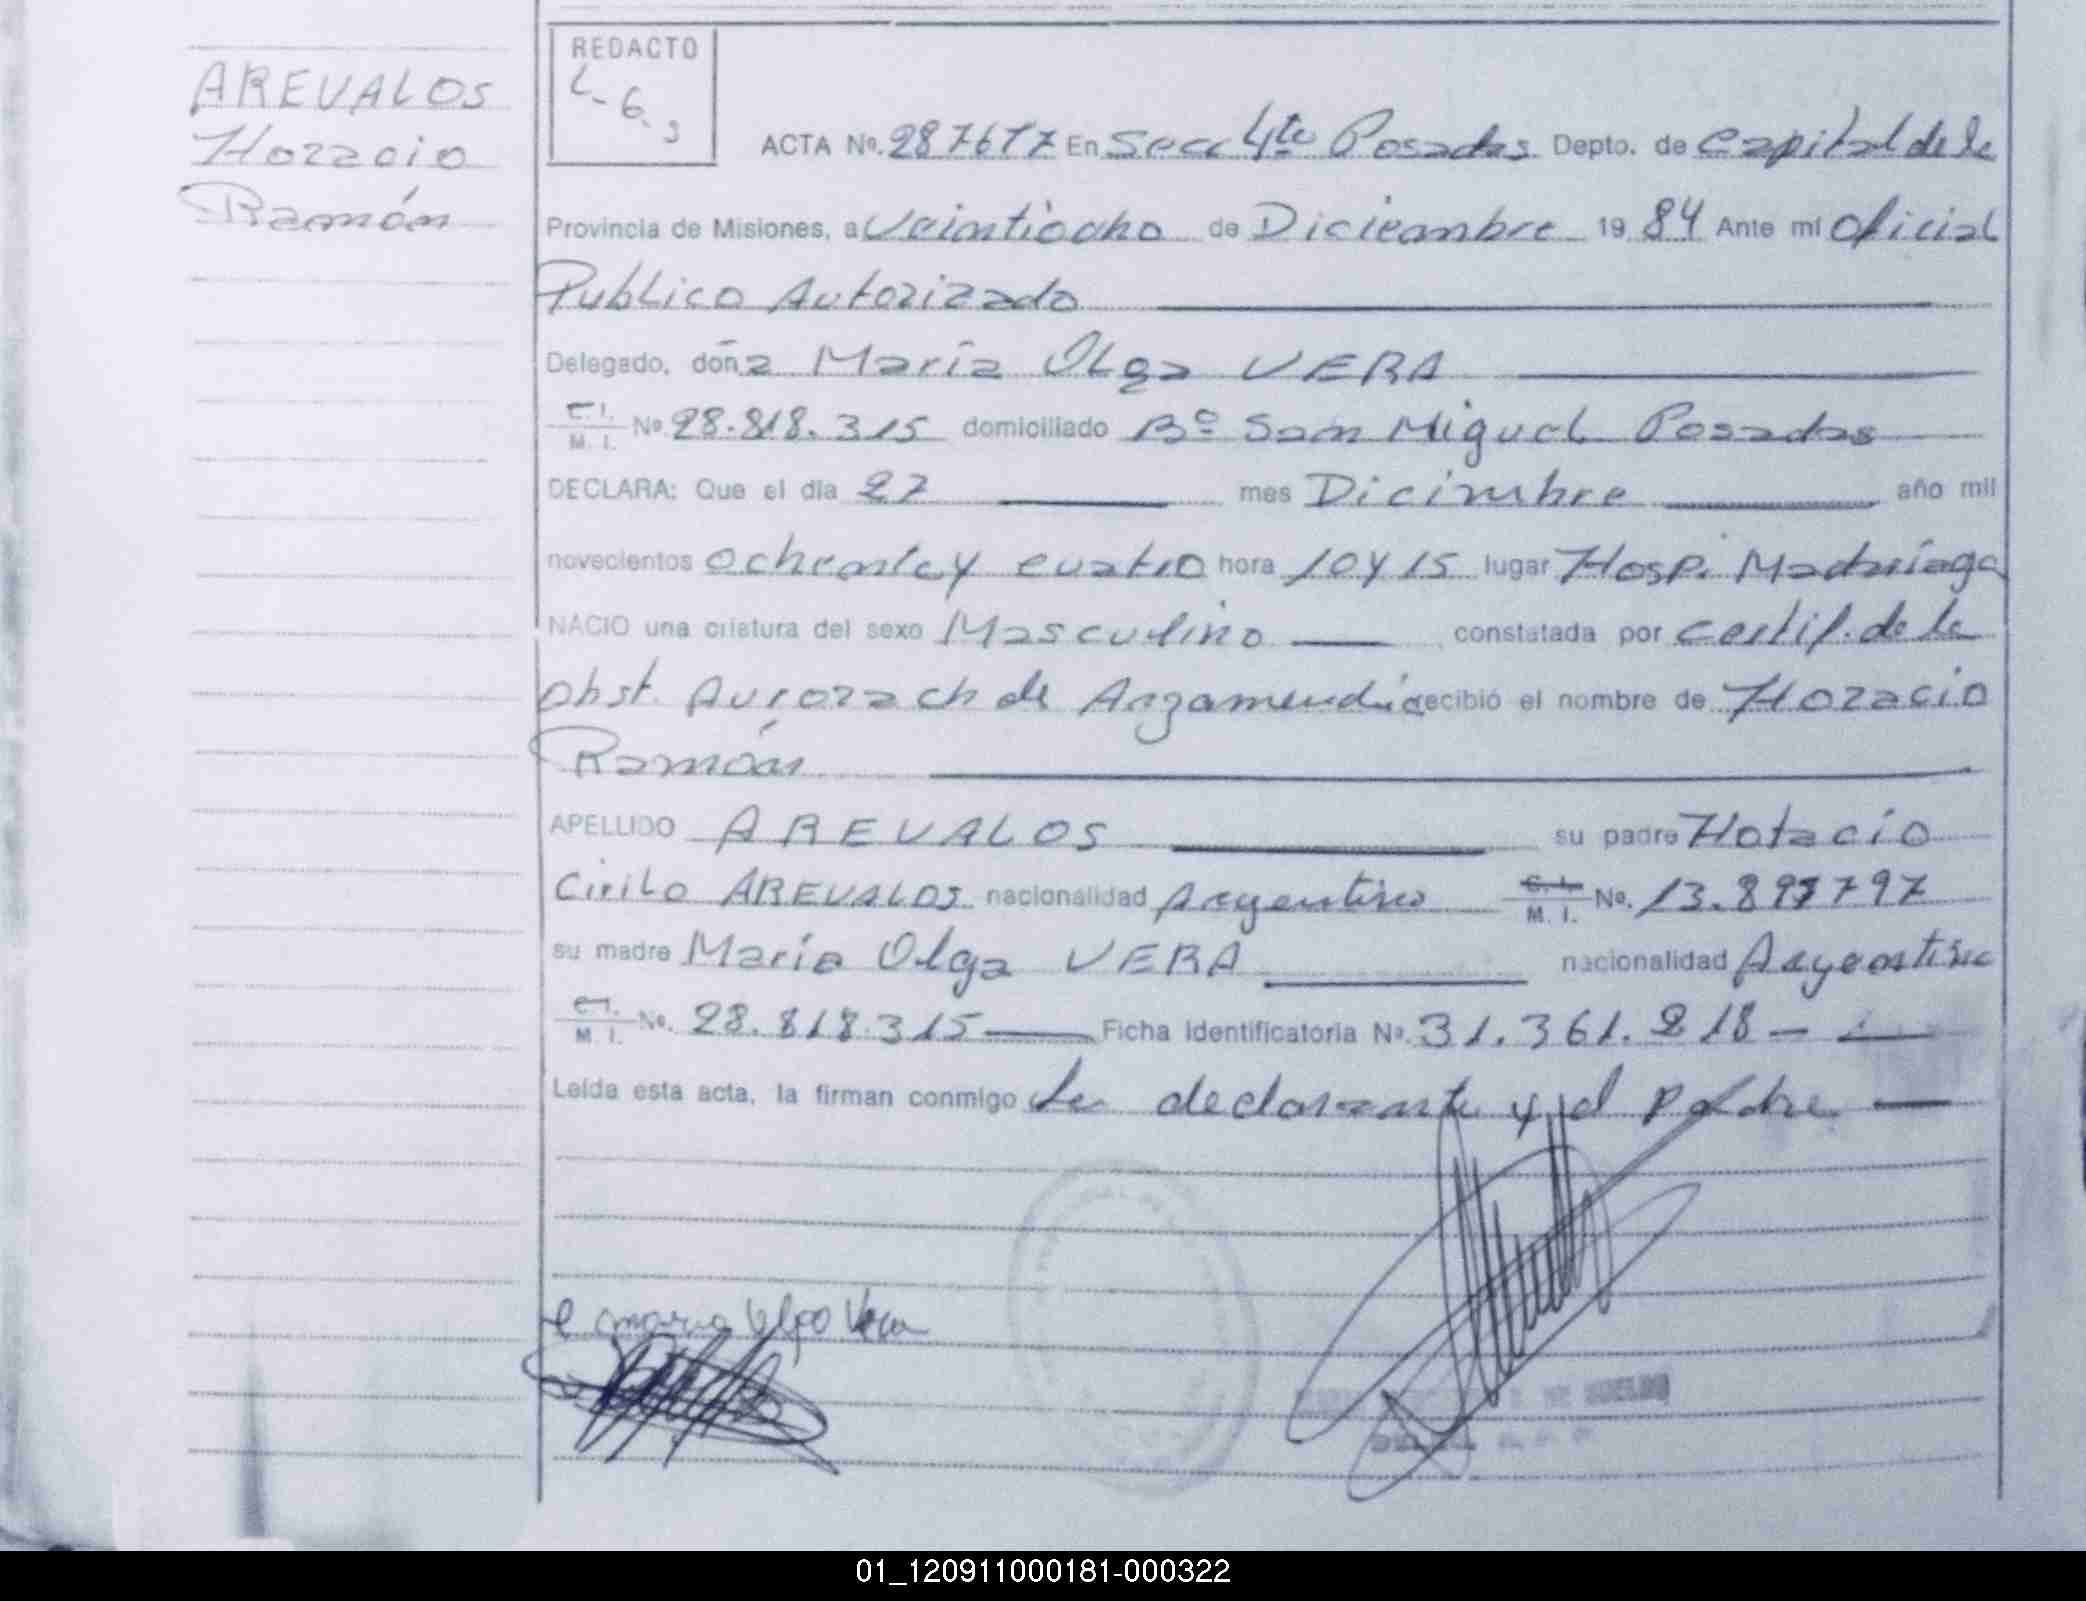 AREVALOS
Horacio
Ramón
REDACTO
L-G.
ACTA Nº. 287677 En Secc 4ta Posadas Depto. de Capital de la
Provincia de Misiones, a Veintiocho de Diciembre 19 84 Ante mí Oficial
Publico Autorizado
Delegado, doña María Olga VERA
C.I. M. I. Nº 28.818.315 domiciliado Bº San Miguel Posadas
DECLARA: Que el día 27 mes Diciembre año mil
novecientos ochenta y cuatro hora 10 y 15 lugar Hosp. Madariaga
NACIO una criatura del sexo Masculino constatada por certif. de la
Obst. Aurora ch de Arzamendia recibió el nombre de Horacio
Ramón
APELLIDO AREVALOS su padre Horacio
Cirilo AREVALOS nacionalidad Argentino C.I. M. I. No. 13.897797
su madre María Olga VERA nacionalidad Argentina
C.I. M. I. No. 28.818.315 Ficha Identificatoria Nº. 31.361.218
Leída esta acta, la firman conmigo La declarante y el padre
maria Olga Vera
DE SUELDO
01_120911000181-000322